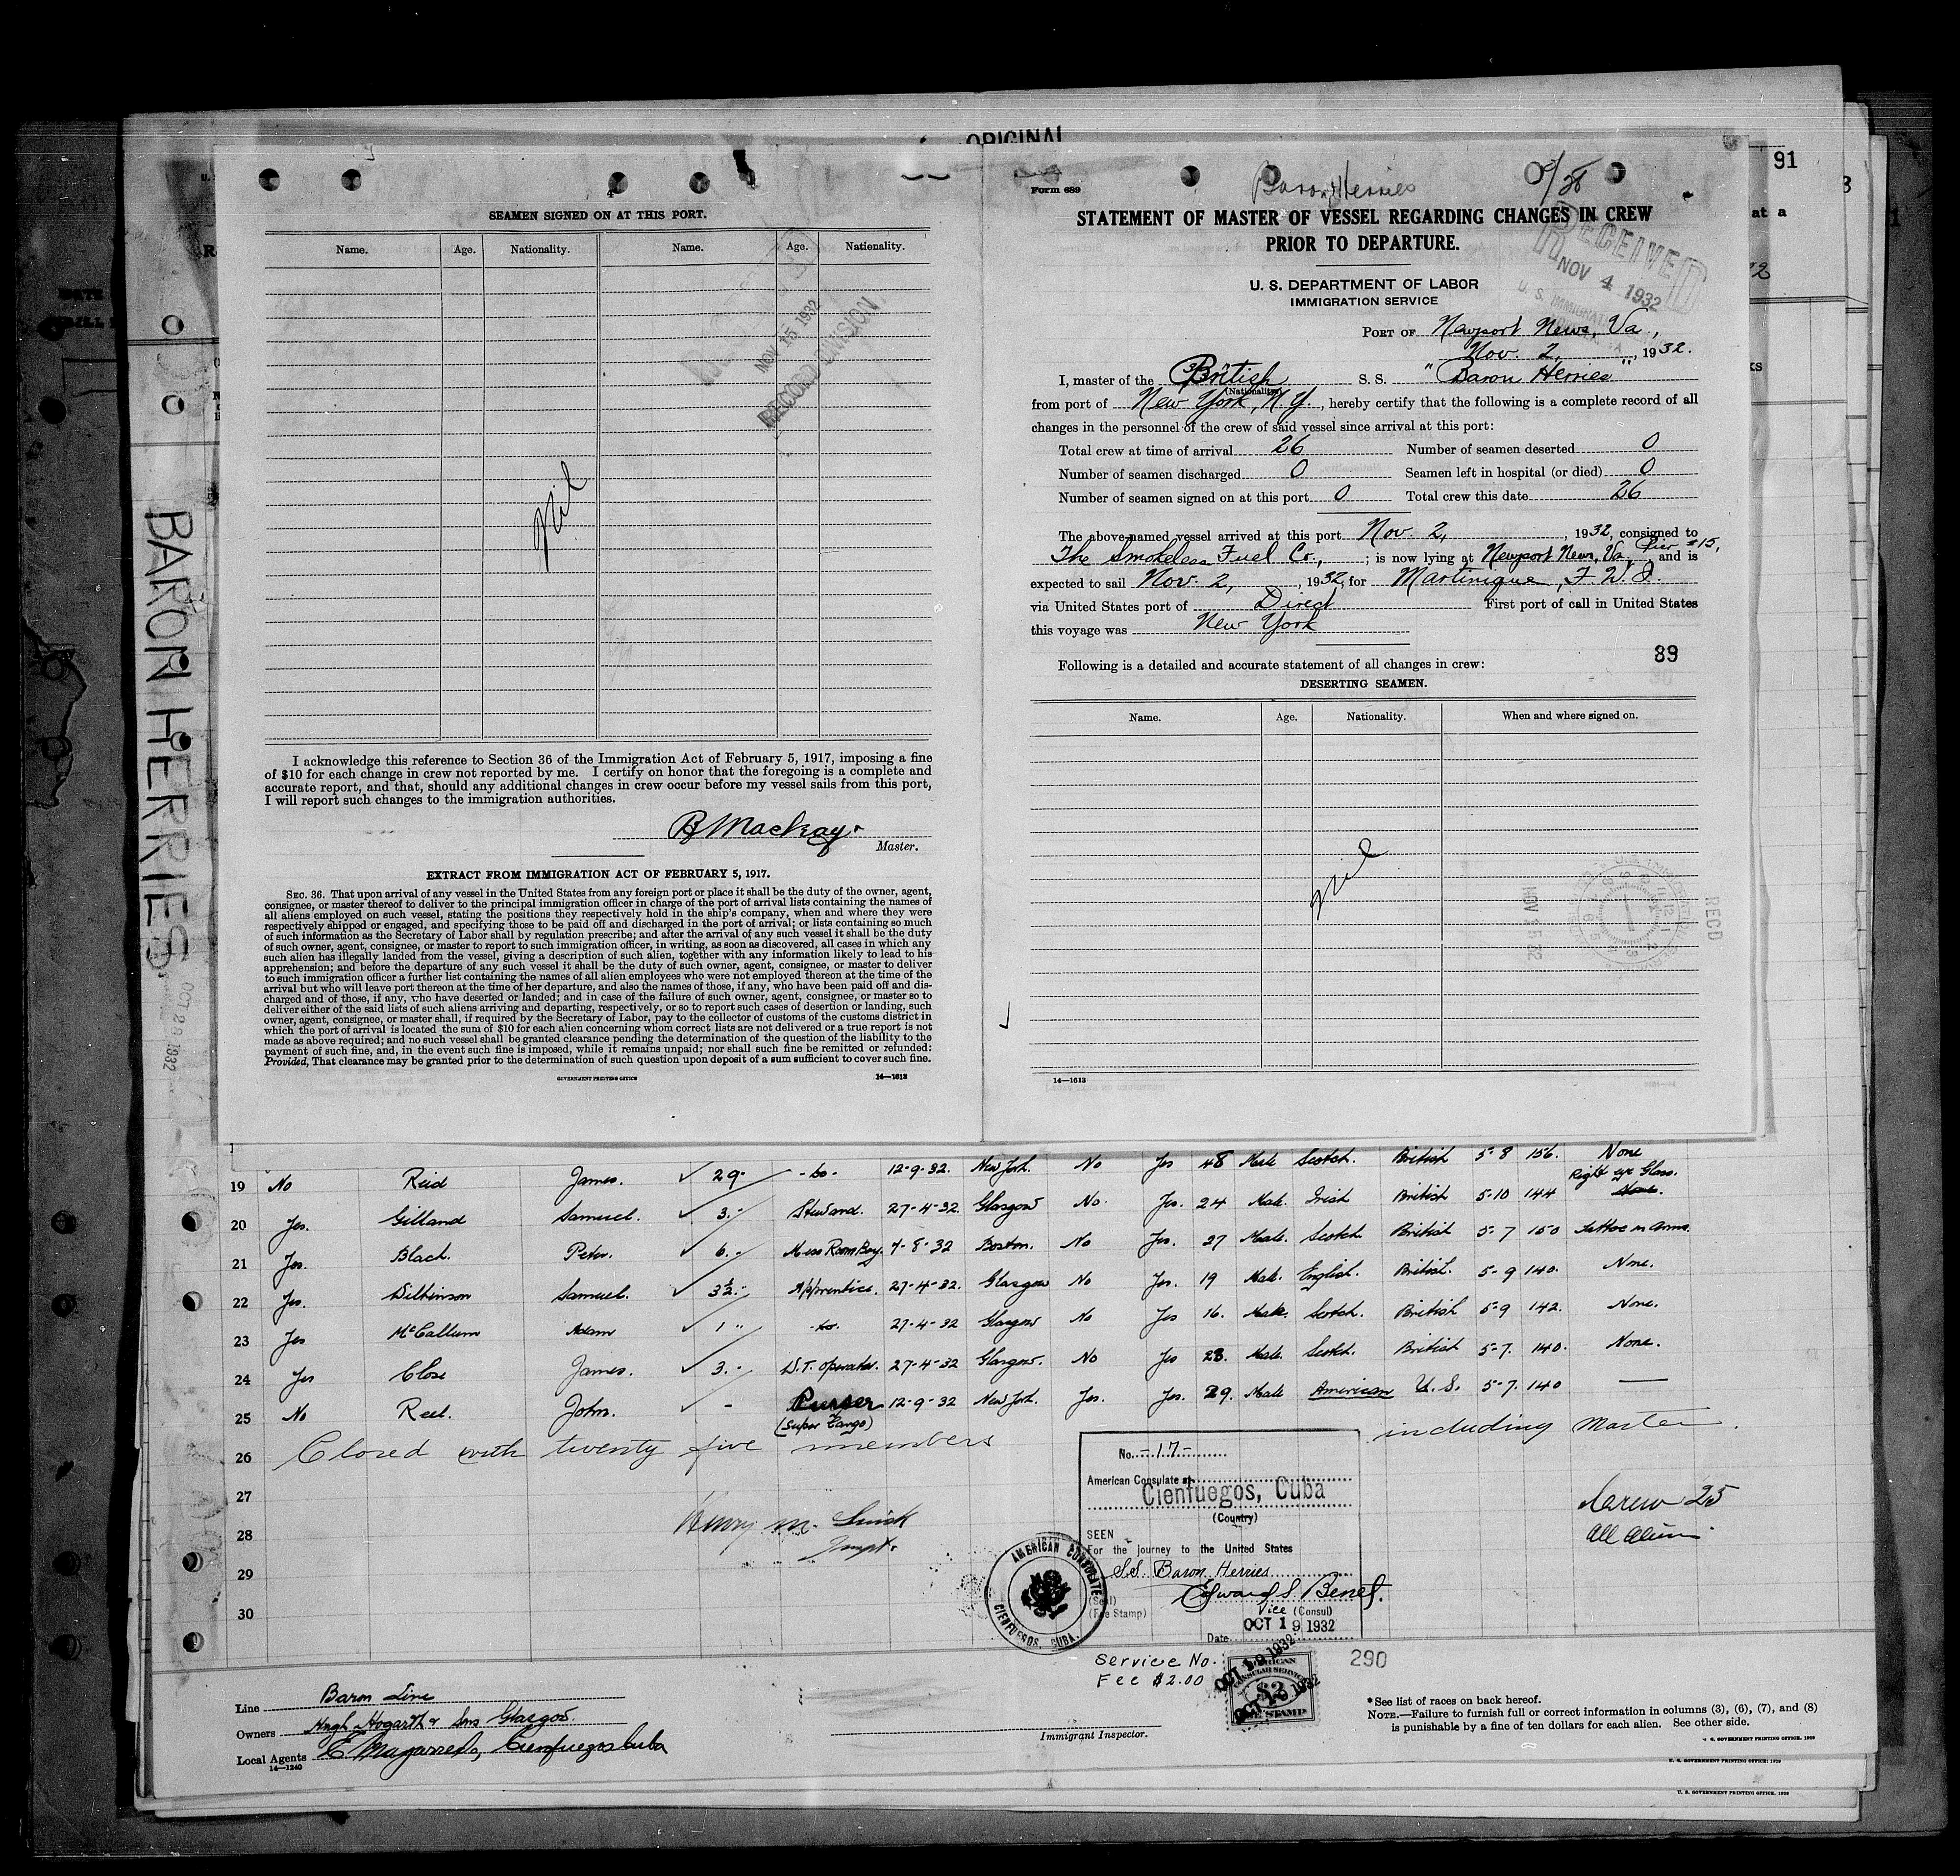 ORIGINAL
91
4
SEAMEN SIGNED ON AT THIS PORT.
Name. Age. Nationality. Name. Age. Nationality.
NOV 15 1932
RECORD DIVISION
Nil
I acknowledge this reference to Section 36 of the Immigration Act of February 5, 1917, imposing a fine
of $10 for each change in crew not reported by me. I certify on honor that the foregoing is a complete and
accurate report, and that, should any additional changes in crew occur before my vessel sails from this port,
I will report such changes to the immigration authorities.
Mackay
Master.
EXTRACT FROM IMMIGRATION ACT OF FEBRUARY 5, 1917.
SEC. 36. That upon arrival of any vessel in the United States from any foreign port or place it shall be the duty of the owner, agent,
consignee, or master thereof to deliver to the principal immigration officer in charge of the port of arrival lists containing the names of
all aliens employed on such vessel, stating the positions they respectively hold in the ship's company, when and where they were
respectively shipped or engaged, and specifying those to be paid off and discharged in the port of arrival; or lists containing so much
of such information as the Secretary of Labor shall by regulation prescribe; and after the arrival of any such vessel it shall be the duty
of such owner, agent, consignee, or master to report to such immigration officer, in writing, as soon as discovered, all cases in which any
such alien has illegally landed from the vessel, giving a description of such alien, together with any information likely to lead to his
apprehension; and before the departure of any such vessel it shall be the duty of such owner, agent, consignee, or master to deliver
to such immigration officer a further list containing the names of all alien employees who were not employed thereon at the time of the
arrival but who will leave port thereon at the time of her departure, and also the names of those, if any, who have been paid off and dis-
charged and of those, if any, who have deserted or landed; and in case of the failure of such owner, agent, consignee, or master so to
deliver either of the said lists of such aliens arriving and departing, respectively, or so to report such cases of desertion or landing, such
owner, agent, consignee, or master shall, if required by the Secretary of Labor, pay to the collector of customs of the customs district in
which the port of arrival is located the sum of $10 for each alien concerning whom correct lists are not delivered or a true report is not
made as above required; and no such vessel shall be granted clearance pending the determination of the question of the liability to the
payment of such fine, and, in the event such fine is imposed, while it remains unpaid; nor shall such fine be remitted or refunded:
Provided, That clearance may be granted prior to the determination of such question upon deposit of a sum sufficient to cover such fine.
GOVERNMENT PRINTING OFFICE 14—1613
Form 689
Baron Herries
STATEMENT OF MASTER OF VESSEL REGARDING CHANGES IN CREW
PRIOR TO DEPARTURE.
RECEIVED
NOV 4 1932
U. S. DEPARTMENT OF LABOR
IMMIGRATION SERVICE
PORT OF Newport News, Va.,
Nov. 2, , 1932.
I, master of the British S. S. "Baron Herries"
(Nationality)
from port of New York, N.Y., hereby certify that the following is a complete record of all
changes in the personnel of the crew of said vessel since arrival at this port:
Total crew at time of arrival 26 Number of seamen deserted 0
Number of seamen discharged 0 Seamen left in hospital (or died) 0
Number of seamen signed on at this port 0 Total crew this date 26
The above-named vessel arrived at this port Nov. 2, , 1932, consigned to
The Smokeless Fuel Co., ; is now lying at Newport News, Va. Pier #15, and is
expected to sail Nov. 2, , 1932, for Martinique, F.W.I.
via United States port of Direct First port of call in United States
this voyage was New York
89
Following is a detailed and accurate statement of all changes in crew:
DESERTING SEAMEN.
Name. Age. Nationality. When and where signed on.
Nil
NOV 15 32
RECD
14—1613
BARON HERRIES
OCT 28 1932
19 No Reid James. 29 -do- 12-9-32. New York. No Yes 48 Male Scotch. British 5-8 156. None
Right eye Glass.
20 Yes. Gilland Samuel. 3. Steward. 27-4-32. Glasgow No. Yes. 24 Male. Irish British 5-10 144 None.
21 Yes. Black. Peter. 6. Mess Room Boy. 4-8-32 Boston. No Yes. 27 Male. Scotch British 5-7 150 Tattoo on arms.
22 Yes. Wilkinson Samuel. 3½ Apprentice. 27-4-32. Glasgow No Yes. 19 Male. English. British. 5-9 140. None.
23 Yes McCallum Adam 1 -do- 27-4-32 Glasgow No Yes 16. Male. Scotch. British 5-9 142. None.
24 Yes Close James. 3. W.T. operator. 27-4-32 Glasgow. No Yes 23. Male. Scotch. British 5-7. 140. None.
25 No Reel. John. - Purser 12-9-32 New York. Yes. Yes. 29. Male American U.S. 5-7. 140
(Super Cargo)
26 Closed with twenty five members including Master.
27
28
29
30
Crew 25
All Aliens
No. -17-
American Consulate at
Cienfuegos, Cuba
(Country)
SEEN
For the journey to the United States
S.S. Baron Herries
Edward S. Benet.
Vice (Consul)
(Seal)
(Fee Stamp)
OCT 19 1932
Date
AMERICAN CONSULATE
CIENFUEGOS, CUBA.
Service No. 290
Fee $2.00
AMERICAN CONSULAR SERVICE
$2
FEE STAMP
OCT 19 1932
OCT 19 1932
Line Baron Line
Owners Hugh Hogarth & Sons Glasgow.
Local Agents Cienfuegos Cuba
14—1240
Immigrant Inspector.
*See list of races on back hereof.
NOTE.—Failure to furnish full or correct information in columns (3), (6), (7), and (8)
is punishable by a fine of ten dollars for each alien. See other side.
U. S. GOVERNMENT PRINTING OFFICE: 1929